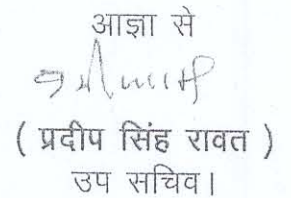 आज्ञा से
( प्रदीप सिंह रावत )
उप सचिव।